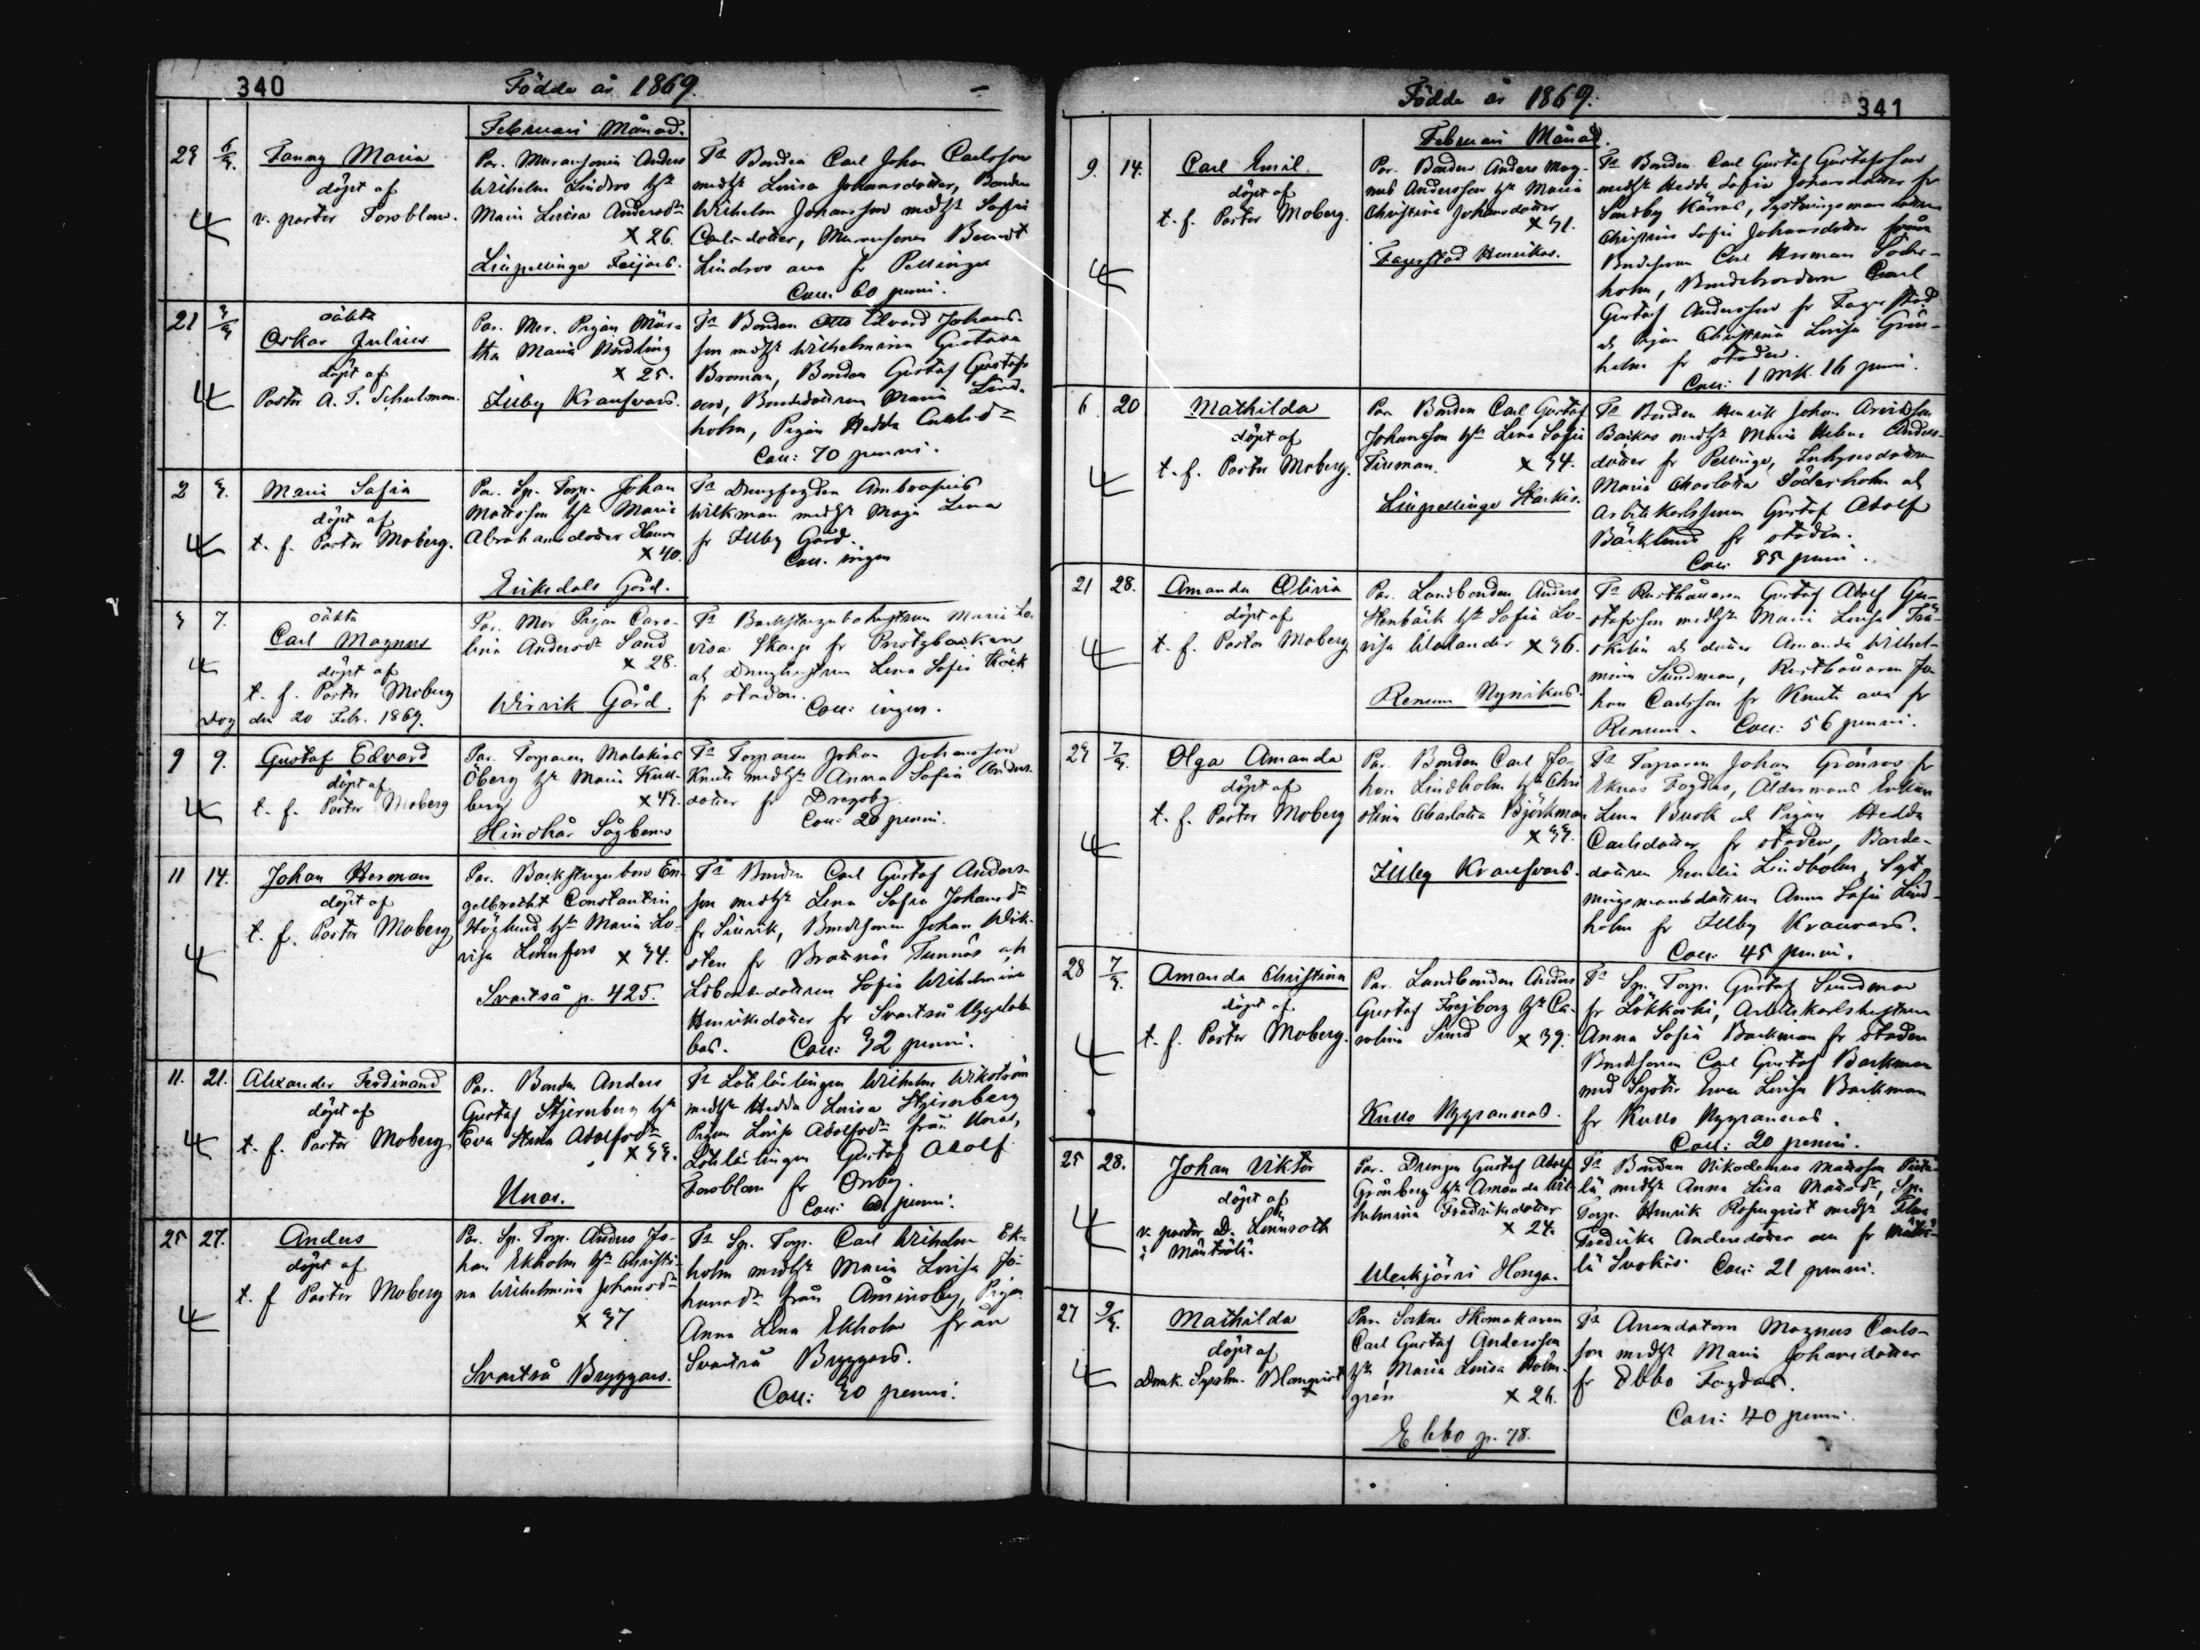 340
Födde år 1869.
Februari Månad.
23 6/3
Fanny Maria
döpt af
v. pastor Forsblom.
Par. Muraresonen Anders
Wilhelm Lindros hst
Maria Lovisa Andersdr
x 26.
Lillpellinge Feijars.
Fr Bonden Carl Johan Carlsson
med hst Lovisa Johansdotter, Bonden
Wilhelm Johansson med hst Sofia
Carlsdotter, Muraresonen Berndt
Lindros alla fr Pellinge
Coll. 60 penni.
21 3/3
oäkta
Oskar Julius
döpt af
Pastor A. F. Schulman.
Par. Mor. Pigan
Maria Nordling
x 25.
Illby Kransvars.
Fr Bonden Otto Edvard Johans-
son med hst Wilhelmina Gustava
Broman, Bonden Gustaf Gustafs-
son, Bondedottren Maria Lind-
holm, Pigan Hedda Carlsdr
Coll: 70 penni.
2 3.
Maria Sofia
döpt af
t. f. Pastor Moberg.
Par. Sp. Torp. Johan
Mattsson hst Maria
Abrahamsdotter
x 40.
Eriksdals Gård.
Fr Drengfogden Ambrosius
Wilkman med hst Maja Lena
fr Illby Gård.
Coll. ingen
3 7.
oäkta
Carl Magnus
döpt af
t. f. Pastor Moberg
Dog den 20 Febr. 1869.
Par. Mor Pigan Caro-
lina Andersdr Sand
x 28.
Wirvik Gård.
Fr Backstugubohustrun Maria Lo-
visa Skarp fr Prostgbacken
och Drenghustrun Lena Sofia
fr staden.
Coll: ingen.
9 9.
Gustaf Edvard
döpt af
t. f. Pastor Moberg
Par. Torparen Malakias
Öberg hst Maria Kull-
berg x 43.
Hindhår Sågbems
Fr Torparen Johan Johansson
Knuts med hst Anna Sofia Anders-
dotter fr Dragsby.
Coll: 20 penni.
11 14.
Johan Herman
döpt af
t. f. Pastor Moberg
Par. Backstugubon En-
gelbrecht Constantin
Höglund hst Maria Lo-
visa Lönnfors x 34.
Svartså p. 425.
Fr Bonden Carl Gustaf Anders-
son med hst Lena Sofia Johansdr
fr Sinvik, Bondsonen Johan Wik-
sten fr Brasnäs Tunnäs och
Lösbodsdottren Sofia Wilhelmina
Henriksdotter fr Svartså Uggelab-
bas. Coll: 32 penni.
11. 21.
Alexander Ferdinand
döpt af
t. f. Pastor Moberg
Par. Bonden Anders
Gustaf Stjernberg hst
Eva Stina Adolfsdr
x 33.
Unas.
Fr Lötslärlingen Wilhelm Wikström
med hst Hedda Lovisa Stjernberg
Pigan Lovisa Adolfsdr från Unas,
Lötslärlingen Gustaf Adolf
Forsblom fr Orrby.
Coll: 60 penni.
25 27.
Anders
döpt af
t. f. Pastor Moberg
Par. Sp. Torp. Anders Jo-
han Ekholm hst Christi-
na Wilhelmina Johansdr
x 37
Svartså Bryggars.
Fr Sp. Torp. Carl Wilhelm Ek-
holm med hst Maria Lovisa Jo-
hansdr från Åminsby, Pigan
Anna Lena Ekholm från
Svartså Bryggars.
Coll: 30 penni.
341
Födde år 1869.
Februari Månad.
9. 14.
Carl Emil
döpt af
t. f. Pastor Moberg.
Par. Bonden Anders Mag-
nus Andersson hst Maria
Christina Johansdotter
x 31.
Fagerstad Henrikas.
Fr Bonden Carl Gustaf Gustafsson
med hst Hedda Sofia Johansdotter fr
Sandby Kärras, Sytningsmansdottren
Christina Sofia Johansdotter från
Bondesonen Carl Herman Söder-
holm, Bondebrodern Carl
Gustaf Andersson fr Fagerstad
och Pigan Christina Lovisa Grön-
holm fr staden.
Coll: 1 mk. 16 penni.
6. 20
Mathilda
döpt af
t. f. Pastor Moberg.
Par. Bonden Carl Gustaf
Johansson hst Lena Sofia
Firman. x 34.
Lillpellinge Starkis.
Fr Bonden Henrik Johan Arvidsson
Backas med hst Maria Helena Anders-
dotter fr Pellinge,
Maria Charlotta Söderholm och
Arbetskarlssonen Gustaf Adolf
Bäcklund fr staden.
Coll: 85 penni.
21 28.
Amanda Olivia
döpt af
t. f. Pastor Moberg
Par. Landbonden Anders
Stenbäck hst Sofia Lo-
visa Welander x 36.
Renum Nynikus.
Fr Rusthållaren Gustaf Adolf Gu-
stafsson med hst Maria Lovisa Frä-
skilin och dotter Amanda Wilhel-
mina Sundman, Rusthållaren Jo-
han Carlsson fr Knuts alla fr
Renum. Coll: 56 penni.
23 7/3.
Olga Amanda
döpt af
t. f. Pastor Moberg
Par. Bonden Carl Jo-
han Lindholm hst Chri-
stina Charlotta Björkman
x 33.
Illby Kransvars.
Fr Torparen Johan Grönros fr
Eknäs Fogdas, Åldermans Enkan
Lena Busk och Pigan Hedda
Carlsdotter fr staden, Bonde-
dottren Emelie Lindholm, Syt-
ningsmansdottren Anna Sofia Lind-
holm fr Illby Kransvars.
Coll: 45 penni.
28 7/3.
Amanda Christina
döpt af
t. f. Pastor Moberg.
Par. Landbonden Anders
Gustaf Frejborg hst Ca-
rolina Sund x 39.
Kullo Nygrannas.
Fr Sp. Torp. Gustaf Sundman
fr Lökkoski, Arbetskarlshustrun
Anna Sofia Backman fr staden
Bondsonen Carl Gustaf Backman
med Syster Eva Lovisa Backman
fr Kullo Nygrannas.
Coll: 20 penni.
25 28.
Johan Viktor
döpt af
v. pastor D. Lönnroth
i Mäntsälä.
Par. Drengen Gustaf Adolf
Grönberg hst Amanda Wil-
helmina Fredriksdotter
x 24.
Werkjärvi Honga.
Fr Bonden Nikodemus Mattsson
lä med hst Anna Lisa Mattsdr, Sp.
Torp. Henrik Rosenqvist med hst
Fredrika Andersdotter alla fr
lä Coll: 21 penni.
27 9/3.
Mathilda
döpt af
Domk. Syssln. Blomqvist
Par. Sockne Skomakaren
Carl Gustaf Andersson
hst Maria Lovisa Holm-
grén x 26.
Ebbo p. 78.
Fr Arrendatorn Magnus Carls-
son med hst Maria Johansdotter
fr Ebbo Fogdas.
Coll: 40 penni.